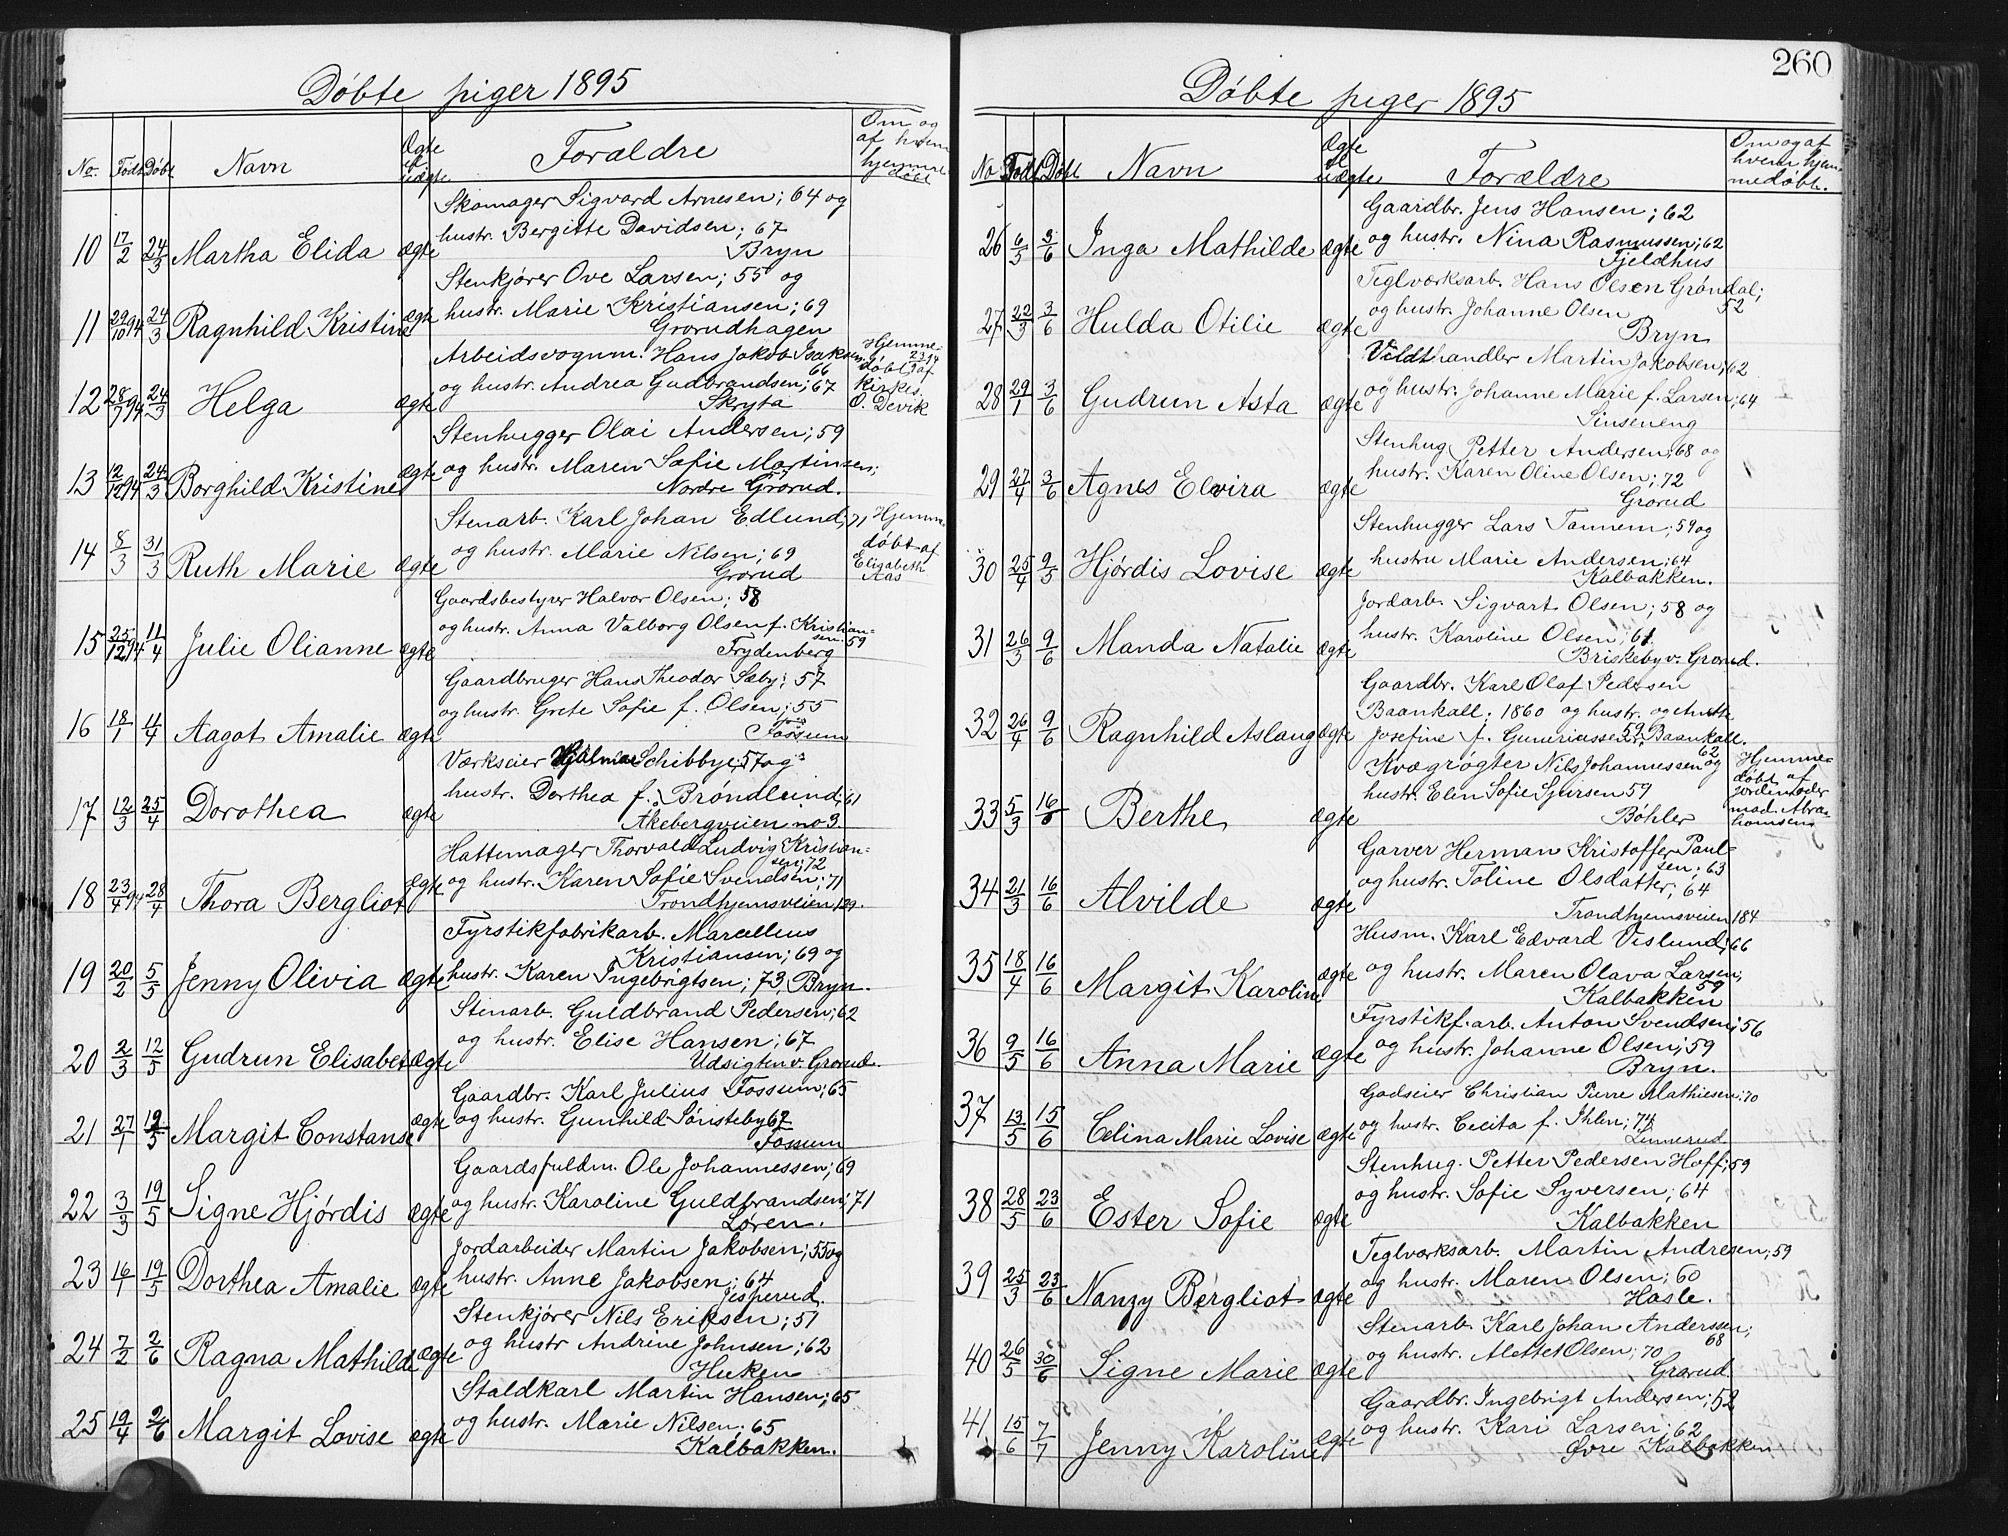 Døbte piger 1895
No. Født Døbt Navn Ægte el. uægte Forældre Om og af hvem hjemmedøbt
10 17/2 24/3 Martha Elida ægte
Skomager Sigvard Arnesen; 64 og
hustr. Bergitte Davidsen; 67
Bryn
11 29/10 94 24/3 Ragnhild Kristine ægte
Stenkjører Ove Larsen; 55 og
hustr. Marie Kristiansen; 69
Grorudhagen
12 28/7 94 24/3 Helga ægte
Arbeidsvognm. Hans Jakob Isaksen
66
og hustr. Andrea Gudbrandsen; 67
Skryta
Hjemme-
døbt af
kirkes.
O. Devik
13 12/12 94 24/3 Borghild Kristine ægte
Stenhugger Olai Andersen; 59
og hustr. Maren Sofie Martinsen;
Nordre Grorud.
14 8/3 31/3 Ruth Marie ægte
Stenarb. Karl Johan Edlund; 71
og hustr. Marie Nilsen; 69
Grorud
Hjemme-
døbt af
Elisabeth
Aas
15 25/12 94 11/4 Julie Olianne ægte
Gaardsbestyrer Halvor Olsen; 58
og hustr. Anna Valborg Olsen f. Kristian-
sen; 59
Frydenberg
16 18/1 4/4 Aagot Amalie ægte
Gaardbruger Hans Theodor Sæby; 57
og hustr. Grete Sofie f. Olsen; 55
Fossum
17 12/3 25/4 Dorothea ægte
Værkseier Hjalmar Schibbye; 57 og
hustr. Dorthea f. Brøndlund; 61
Åkebergveien no 3.
18 23/4 94 28/4 Thora Bergliot ægte
Hattemager Thorvald Ludvig Kristian-
sen; 72
og hustr. Karen Sofie Svendsen; 71
Trondhjemsveien 129.
19 20/2 5/5 Jenny Olivia ægte
Fyrstikfabrikarb. Marcellius
Kristiansen; 69 og
hustr. Karen Ingebrigtsen; 73, Bryn.
20 2/3 12/5 Gudrun Elisabet ægte
Stenarb. Guldbrand Pedersen; 62
og hustr. Elise Hansen; 67
Udsigten v. Grorud.
21 27/1 19/5 Margit Constanse ægte
Gaardbr. Karl Julius Fossum; 65
og hustr. Gunhild Sønsteby 67
Fossum
22 3/3 19/5 Signe Hjørdis ægte
Gaardsfuldm. Ole Johannessen; 69
og hustr. Karoline Guldbrandsen; 71
Løren.
23 16/1 19/5 Dorthea Amalie ægte
Jordarbeider Martin Jakobsen; 55 og
hustr. Anne Jakobsen; 64
Jesperud.
24 7/2 2/6 Ragna Mathilde ægte
Stenkjører Nils Eriksen; 57
og hustr Andrine Johnsen; 62
Huken
25 19/4 2/6 Margit Lovise ægte
Staldkarl Martin Hansen; 65
og hustr. Marie Nilsen; 65
Kalbakken.
260
Døbte piger 1895
No Født Døbt Navn Ægte el. uægte Forældre Om og af hvem hjemmedøbt.
26 6/5 3/6 Inga Mathilde ægte
Gaardbr. Jens Hansen; 62
og hustr. Nina Rasmussen; 62
Fjeldhus
27 22/3 3/6 Hulda Otilie ægte
Teglværksarb. Hans Olsen Grøndal;
52
og hustr. Johanne Olsen
Bryn
28 29/1 3/6 Gudrun Asta ægte
Vildthandler Martin Jakobsen; 62
og hustr. Johanne Marie f. Larsen; 64
Sinseneng
29 27/4 3/6 Agnes Elvira ægte
Stenhug. Petter Andersen; 68 og
hustr. Karen Oline Olsen; 72
Grorud
30 25/4 9/5 Hjørdis Lovise ægte
Stenhugger Lars Tannem; 59 og
hustru Marie Andersen; 64
Kalbakken.
31 26/3 9/6 Manda Natalie ægte
Jordarb. Sigvart Olsen; 58 og
hustr. Karoline Olsen; 61.
Briskeby v. Grorud.
32 26/4 9/6 Ragnhild Aslaug ægte
Gaardbr. Karl Olaf Pedersen
Baankall; 1860 og hustr. Anette
Josefine f. Guneriussen 59 Baankall.
33 5/3 16/6 Berthe ægte
Kvægrøgter Nils Johannessen 62 og
hustr. Elen Sofie Sjursen 59
Bøhler
Hjemme-
døbt af
jordemoder
mad. Abra-
hamsen
34 21/3 16/6 Alvilde ægte
Garver Herman Kristoffer Paul-
sen; 63
og hustr. Toline Olsdatter; 64
Trondhjemsveien 184
35 18/4 16/6 Margit Karoline ægte
Husm. Karl Edvard Vislund; 66
og hustr. Maren Olava Larsen,
59
Kalbakken
36 9/5 16/6 Anna Marie ægte
Fyrstikf. arb. Anton Svendsen; 56
og hustr. Johanne Olsen; 59
Bryn.
37 13/5 15/6 Celina Marie Lovise ægte
Godseier Christian Pierre Mathiesen; 70
og hustr. Cecita f. Ihlen; 74
Linnerud
38 28/5 23/6 Ester Sofie ægte
Stenhug. Petter Pedersen Hoff; 59
og hustr. Sofie Syversen; 64
Kalbakken
39 25/3 23/6 Nanzy Bergliot ægte
Teglværksarb. Martin Andresen; 59
og hustr. Maren Olsen; 60
Hasle.
40 26/5 30/6 Signe Marie ægte
Stenarb. Karl Johan Anderssen;
68
og hustr. Alettet Olsen; 70
Grorud.
41 15/6 7/7 Jenny Karoline ægte
Gaardbr. Ingebrigt Andersen; 52
og hustr. Kari Larsen; 62
Øvre Kalbakken